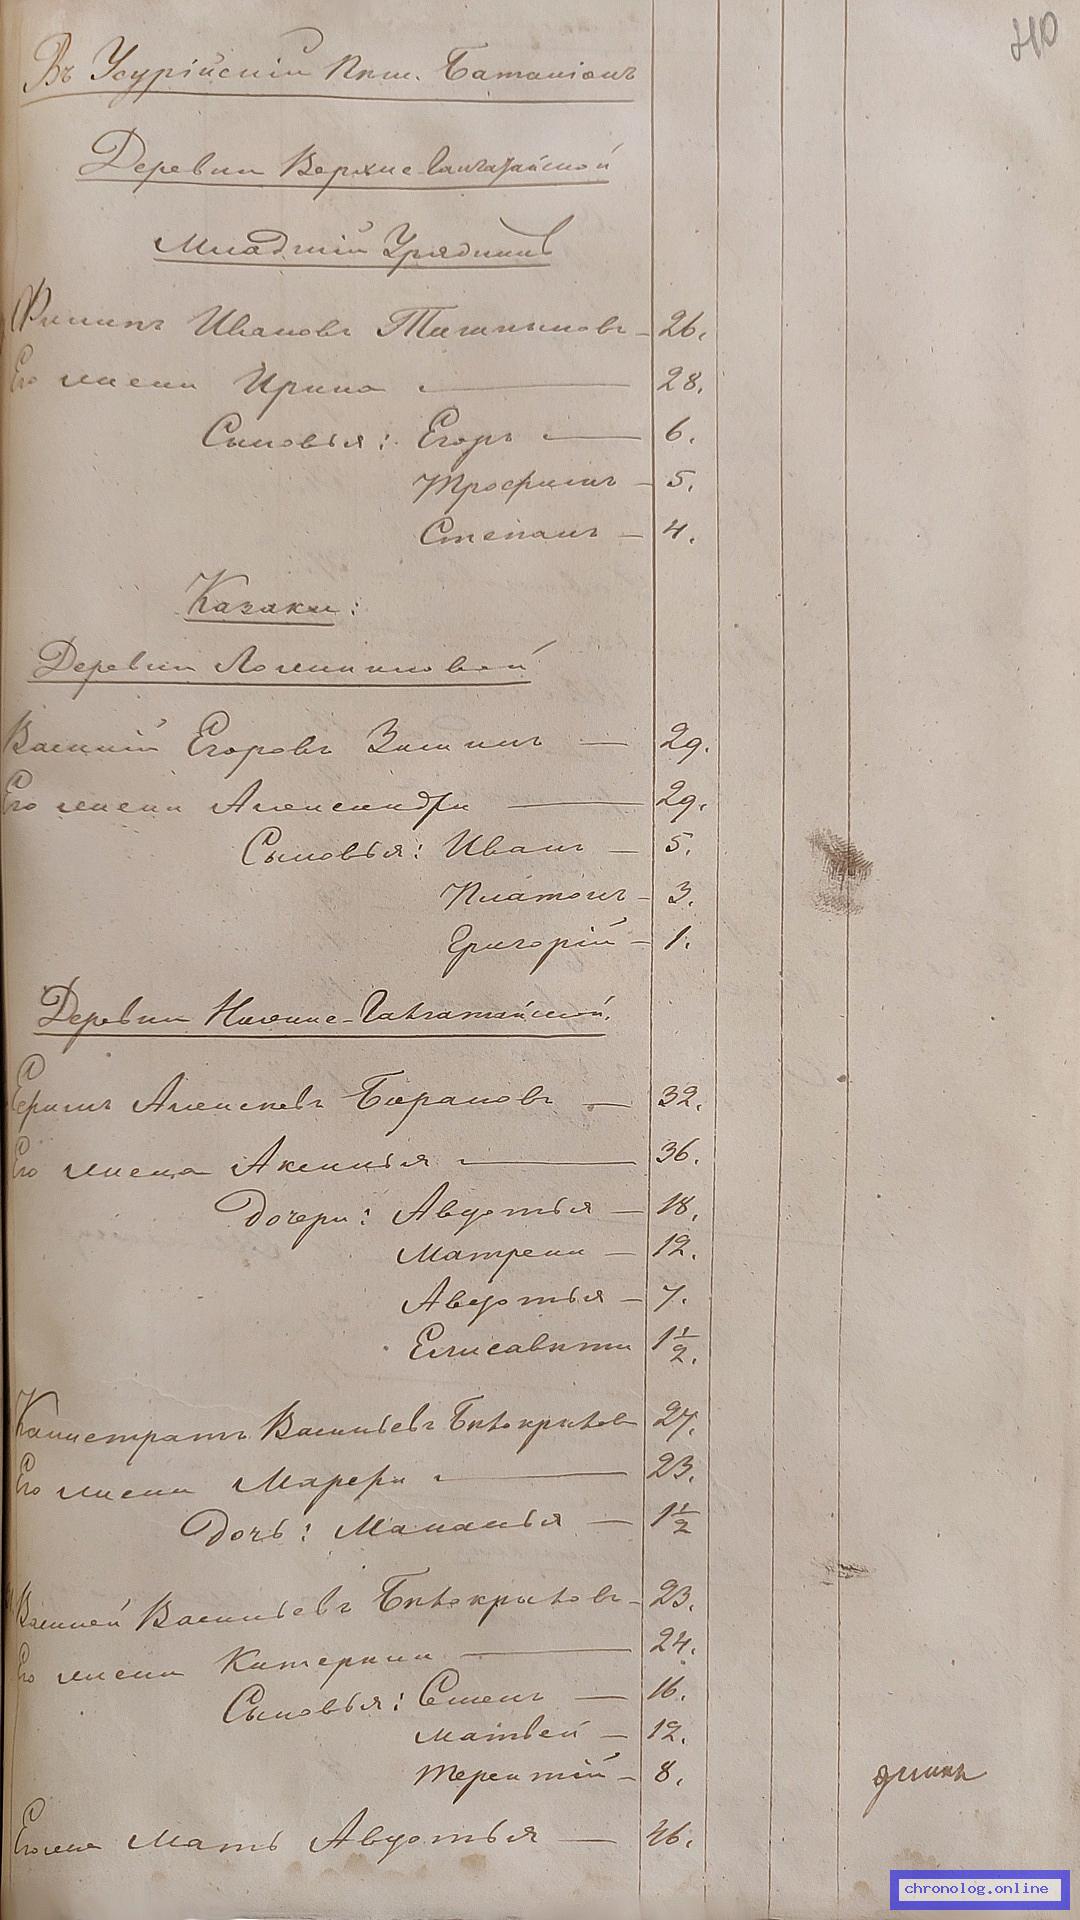 40
Въ Усурійскій Пѣш. Баталіонъ
Деревни Верхне-
Младшій Урядникъ
Филипъ Ивановъ — 26.
Его жена Ирина — 28.
Сыновья: Егоръ — 6.
Трофимъ — 5.
Степанъ — 4.
Казаки:
Деревни Ломиной
Василій Егоровъ Зиминъ — 29.
Его жена Александра — 29.
Сыновья: Иванъ — 5.
Платонъ — 3.
Григорій — 1.
Деревни Нижне-
Алексѣевъ Барановъ — 32.
Его жена Аксинья — 36.
Дочери: Авдотья — 18.
Матрена — 12.
Авдотья — 7.
Елисавета 1 1/2.
Калистратъ Васильевъ Бѣлокрыловъ 27.
Его жена Марфа — 23.
Дочь: Маланья — 1 1/2
Василей Васильевъ Бѣлокрыловъ — 23.
Его жена Катерина — 24.
Сыновья: Семенъ — 16.
Матвей — 12.
Терентій — 8.
Его мать Авдотья — 46.
chronolog.online